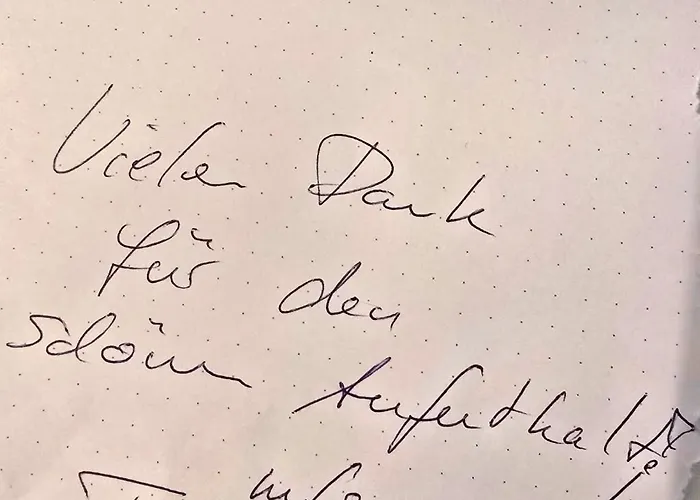 Vielen Dank
für den
schönen Aufenthalt!